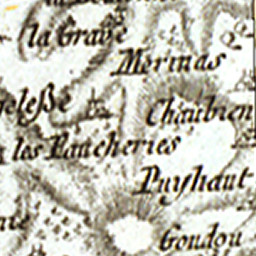 la Grave
Merinas
geleße
Chaubien
les Pancheries
Puyhaut
Goudou